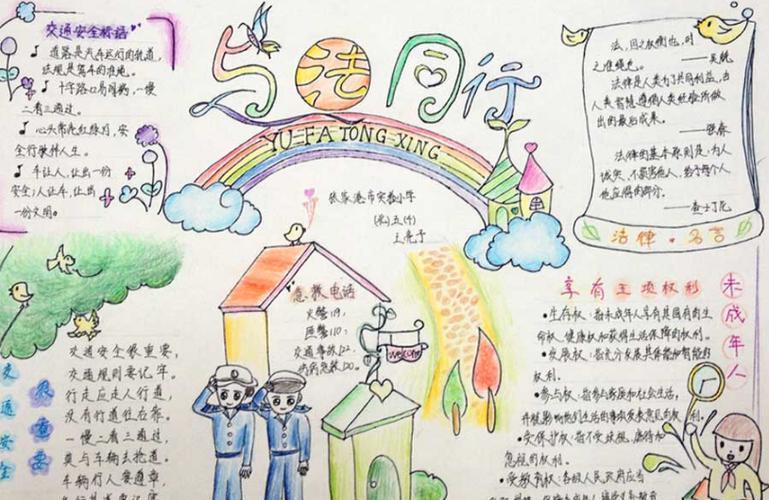 与法同行
YU-FA TONG XING
张家港市实验小学
交通安全标语
道路是汽车运行的轨道,
法规是驾车的准绳。
十字路口易闯祸,一慢
二看三通过。
心头常亮红绿灯,安
全行驶伴人生。
车让人,让出一份
安全;人让车,让出
一份文明。
法,国之权衡也,时
之准绳也。
——吴兢
法律是人类为了共同利益,由
人类智慧遵循人类经验所做
出的最后成果。
——强森
法律的基本原则是:为人
诚实,不损害他人,给予每个人
他应得的部分。
——查士丁尼
法律·名言
急救电话
火警119:
匪警110:
交通事故122.
伤病急救120。
welcome
交通安全
很重要
交通安全很重要,
交通规则要记牢。
行走应走人行道,
没有行道往右靠。
一慢二看三通过,
莫与车辆去抢道。
车辆行人要遵章,
享有五项权利
未成年人
生存权:指未成年人享有其固有的生
命权、健康权和获得生活保障的权利。
发展权:指充分发展其体能和智能的
权利。
参与权:指参与家庭和社会生活,
并就影响他们生活的事项发表意见的权利。
受保护权:指不受歧视、虐待和
忽视的权利。
受教育权:各级人民政府应当